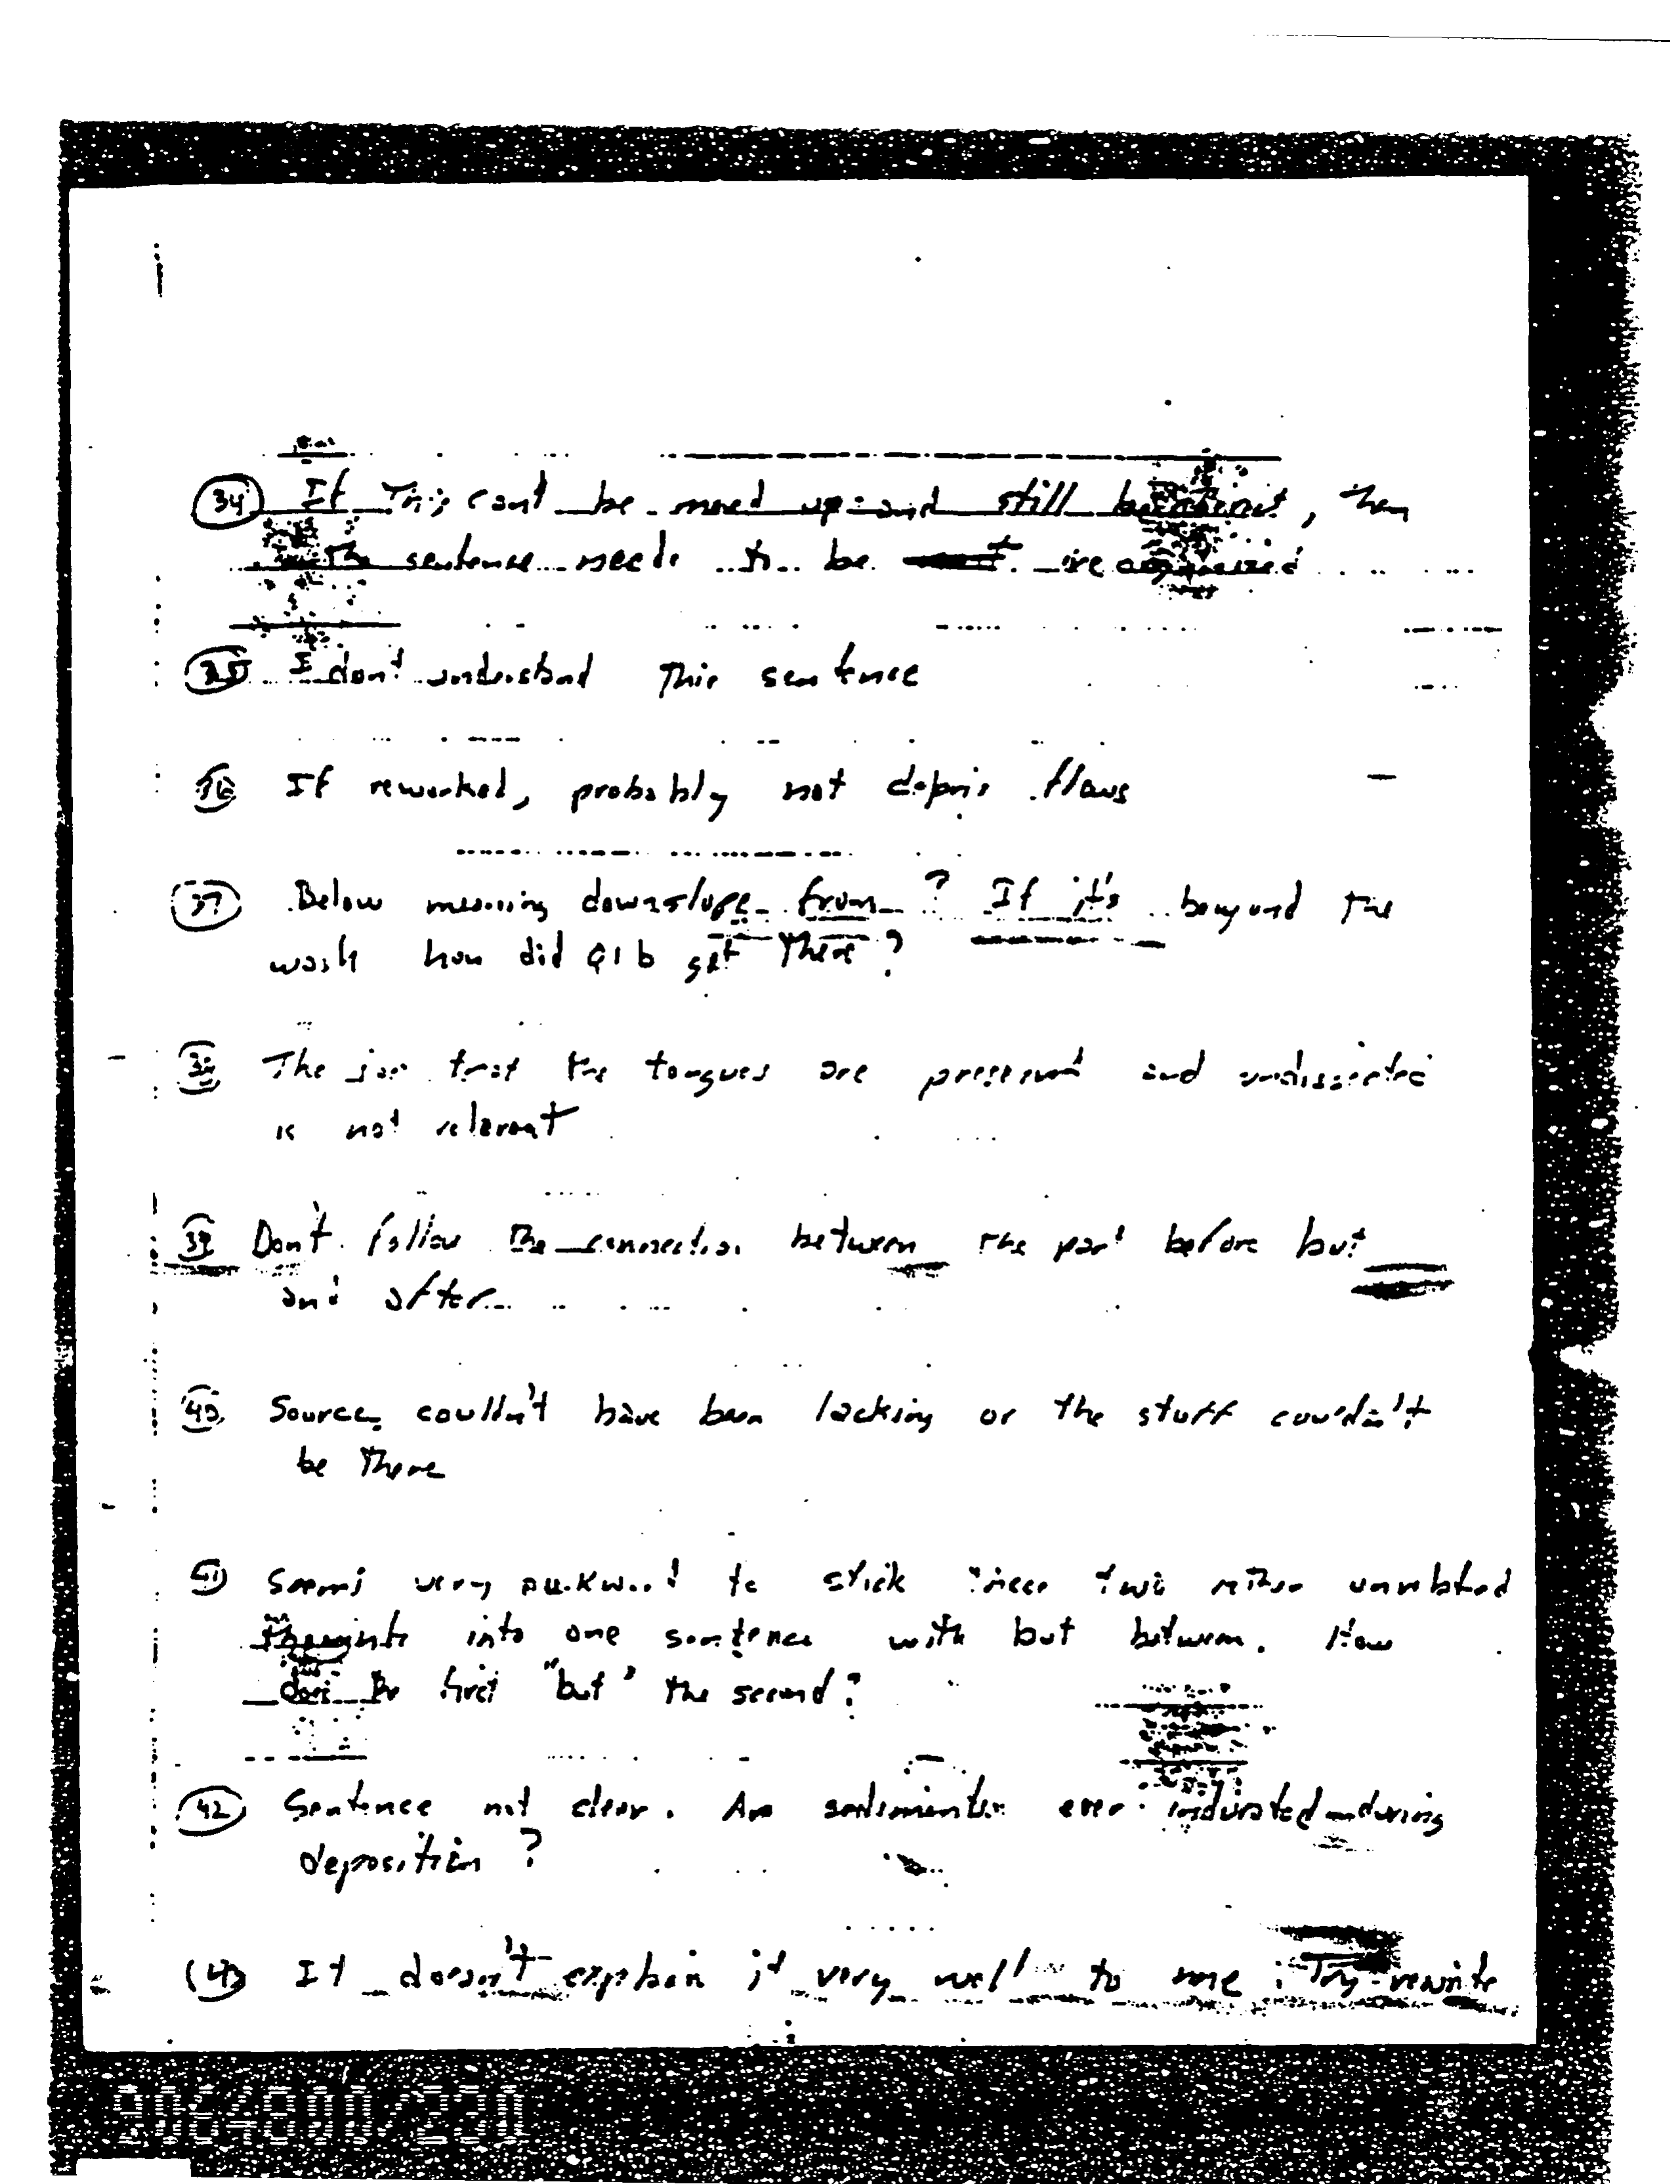 (34) If This can't be moved up and still be , then
the sentence needs to be reorganized
(35) I don't understand This sentence
(36) If reworked, probably not debris flows
(37) Below meaning downslope from? If it's beyond the
wash how did Q1b get There?
(38) The that the tongues are preserved and undissected
is not relevant
(39) Don't follow The connection between the part before but
and after
(40) Source couldn't have been lacking or the stuff couldn't
be There
(41) Seems very awkward to stick these two rather unrelated
thoughts into one sentence with but between. How
does the first "but" the second?
(42) Sentence not clear. Are sediments ever indurated during
deposition?
(43) It doesn't explain it very well to me. Try rewrite